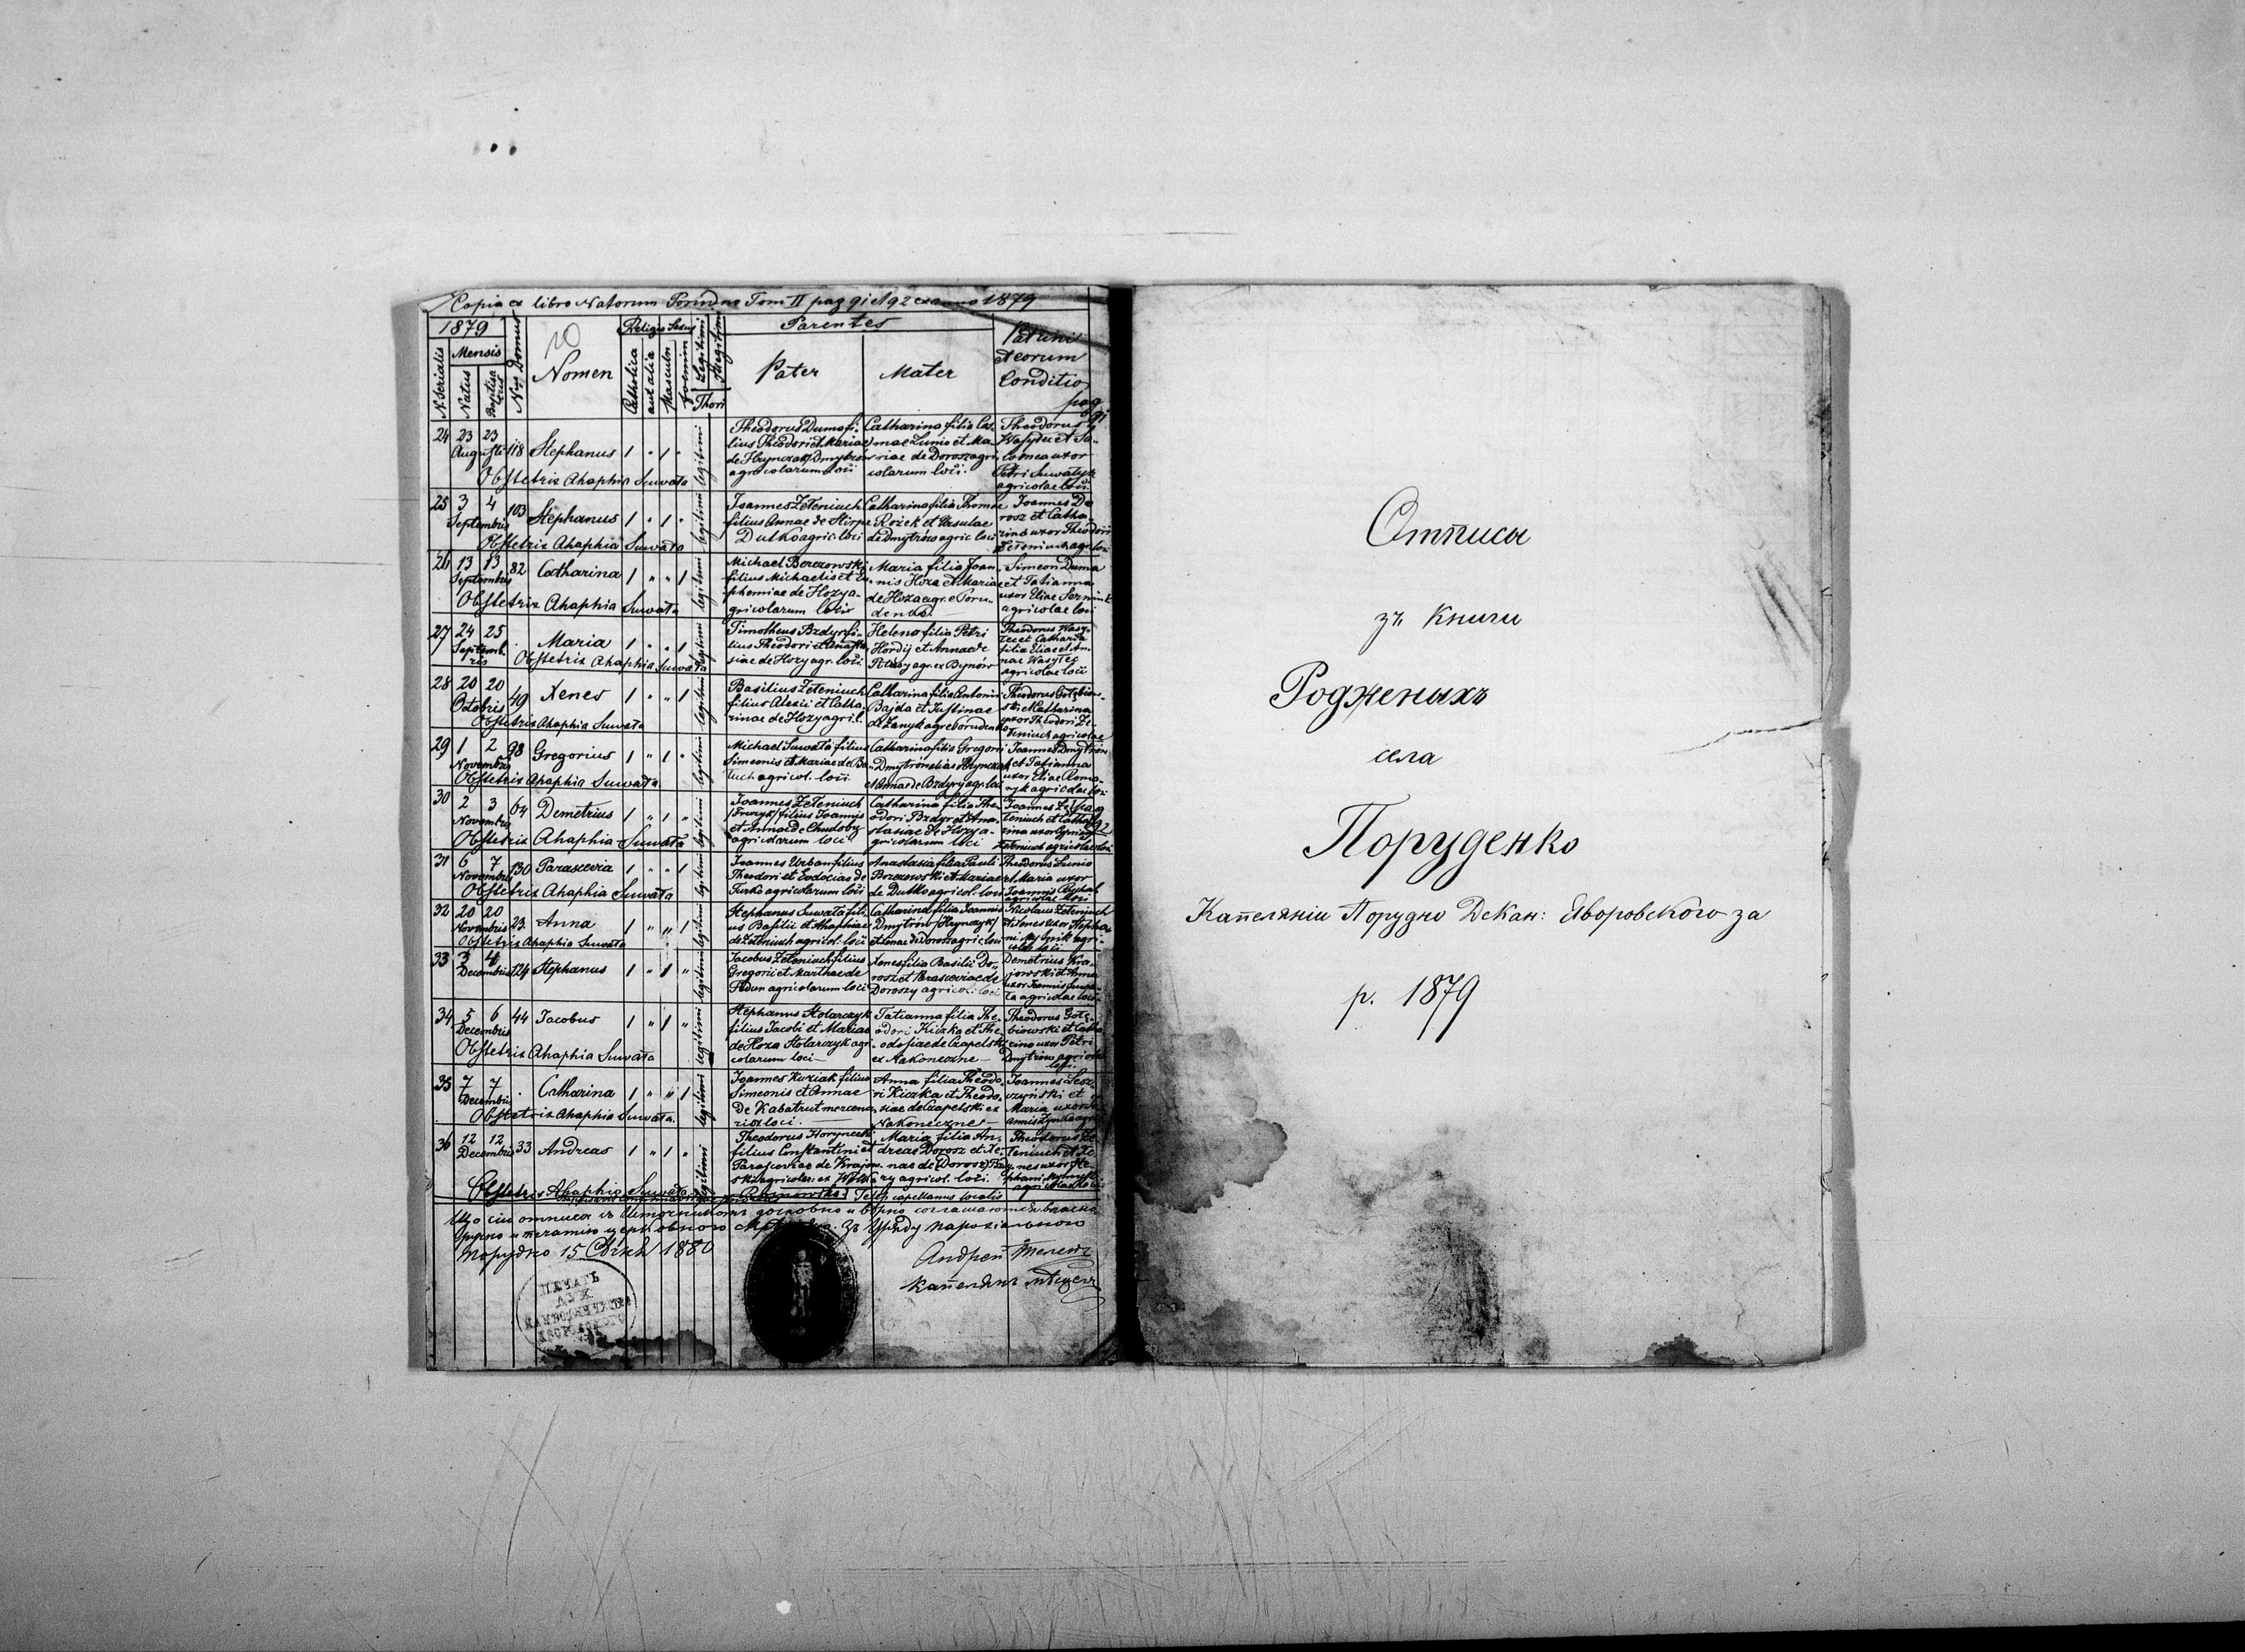 Copia ex libro Natorum Porudno Tom II pag 91 et 92 ex anno 1879
1879
N. Serialis
Mensis
Natus
Baptisatus
Nrs Domus
Nomen
Religio
Catholica
aut alia
Sexus
Masculin
Foeminin
Legitimi
Illegitimi
Thori
Parentes
Pater
Mater
Patrini
et eorum
Conditio
pag
91
24 23 23 Augusti 118 Stephanus 1 " 1 " legitimi
Obstetrix Ahaphia Suwata
Theodorus Duma fi-
lius Theodori et Mariae
de Hrynczak Dmytrow
agricolarum loci
Catharina filia Cos-
mae Lunio et Ma-
riae de Dorosz agri-
colarum loci.
Theodorus
Wasylec et Sa-
lomea uxor
Petri Suwatyk
agricolae loci.
25 3 4 Septembris 103 Stephanus 1 " 1 " legitimi
Obstetrix Ahaphia Suwata
Joannes Zeleniuch
filius Annae de Stirpe
Dutko agric. loci
Catharina filia Thomae
Rożek et Ursulae
de Dmytrow agric loci
Joannes Do-
rosz et Catha-
rina uxor Theodori
Zeleniuch agr. loci
26 13 13 Septembris 82 Catharina 1 " " 1 legitimi
Obstetrix Ahaphia Suwata
Michael Berezowski
filius Michaelis et Eu-
phemiae de Hozy a-
gricolarum loci
Maria filia Joan-
nis Hoza et Mariae
de Hoza agr. e Poru-
denko.
Simeon Duma
et Tatianna
uxor Eliae
agricolae loci
27 24 25 Septembris . Maria 1 " " 1 legitimi
Obstetrix Ahaphia Suwata
Timotheus Bzdyr fi-
lius Theodori et Anasta-
siae de Hozy agr. loci
Helena filia Petri
Hordij et Annae de
agr. ex Bynów
Theodorus Wasy-
lec et Catharina
filia Eliae et An-
nae Wasylec
agricolae loci
28 20 20 Octobris 49 Xenes 1 " " 1 legitimi
Obstetrix Ahaphia Suwata
Basilius Zeleniuch
filius Alexii et Catha-
rinae de Hozy agri l.
Catharina filia Antonii
Bajda et Justinae
de Zanyk agr e Porudenko
Theodorus Gołębiow-
ski et Catharina
uxor Theodori Ze-
leniuch agricolae
29 1 2 Novembris 98 Gregorius 1 " 1 " legitimi
Obstetrix Ahaphia Suwata
Michael Suwata filius
Simeonis et Mariae de Ba-
luch agricol. loci.
Catharina filia Gregorii
Dmytrów alias Hrynczak
et Annae de Bzdyry agr. loci
Joannes Dmytrów
et Tatianna
uxor Eliae Roma-
nyk agricolae loci
30 2 3 Novembris 64 Demetrius 1 " 1 " legitimi
Obstetrix Ahaphia Suwata
Joannes Zeleniuch
filius Joannis
et Annae de Chudoby
agricolarum loci
Catharina filia The-
odori Bzdyr et Ana-
stasiae de Hozy a-
gricolarum loci
Joannes Ze-
leniuch et Catha-
rina uxor Cypriani
Zeleniuch agricolae loci
pag
92
31 6 7 Novembris 130 Parascevia 1 " " 1 legitimi
Obstetrix Ahaphia Suwata
Joannes Urban filius
Theodori et Eudociae de
Turko agricolarum loci
Anastasia filia Pauli
Berezowski et Mariae
de Dutko agricol. loci
Theodorus Lunio
et Maria uxor
Joannis Rychal
agricolae loci
32 20 20 Novembris 23. Anna 1 " " 1 legitimi
Obstetrix Ahaphia Suwata
Stephanus Suwata fili-
us Basilii et Ahaphiae
de Zeleniuch agricol. loci
Catharina filia Joannis
Dmytrów /Hrynczyk/
et Xenae de Dorosz agric loci
Nicolaus Zeleniuch
et Xenes uxor Stepha-
ni agri-
colae loci
33 3 4 Decembris 124 Stephanus 1 " 1 " legitimi
Jacobus Zeleniuch filius
Gregorii et Marthae de
Fedun agricolarum loci
Xenes filia Basilii Do-
rosz et Parasceviae de
Doroszy agricol. loci
Demetrius Kra-
jewski et Anna
uxor Joannis Suwa-
ta agricolae loci
34 5 6 Decembris 44 Jacobus 1 " 1 " legitimi
Obstetrix Ahaphia Suwata
Stephanus Stolarczyk
filius Jacobi et Mariae
de Hoza Stolarczyk agri-
colarum loci —
Tatianna filia The-
odori Kiczka et The-
odosiae de Czapelski
ex Nakoneczne —
Theodorus Gołę-
biowski et Catha-
rina uxor Petri
Dmytrów agricolae
loci.
35 7 7 Decembris . Catharina 1 " " 1 legitimi
Obstetrix Ahaphia Suwata.
Joannes Kuziak filius
Simeonis et Annae
de Kabatrut mercena-
rior loci.
Anna filia Theodo-
ri Kiczka et Theodo-
siae de Czapelski ex
Nakoneczne
Joannes Lesz-
czyński et
Maria uxor Jo-
annis agri
36 12 12 Decembris 33 Andreas 1 " 1 " legitimi
Obstetrix Ahaphia Suwata
Theodorus Horynecki
filius Constantini et
Parasceviae de Krajew-
ski agricolar. ex Wolka
Maria filia An-
dreae Dorosz et Xe-
nae de (Dorosz) Ba-
ry agricol. loci.
Theodorus Ze-
leniuch et Xe-
nes uxor Ste-
phani
agricolae loci
capellanus localis
Що сіи отписи съ дословно и вѣрно соглашаются власно-
ручно и печатію церковною Зъ Уряду парохіального
Порудно 15 Січня 1880
Андрей Телещ
капелянъ мѣсцев
ПЕЧАТЬ
Отписы
зъ Книги
Родженыхъ
села
Поруденко
Капеляніи Порудно Декан: Яворовского за
р. 1879